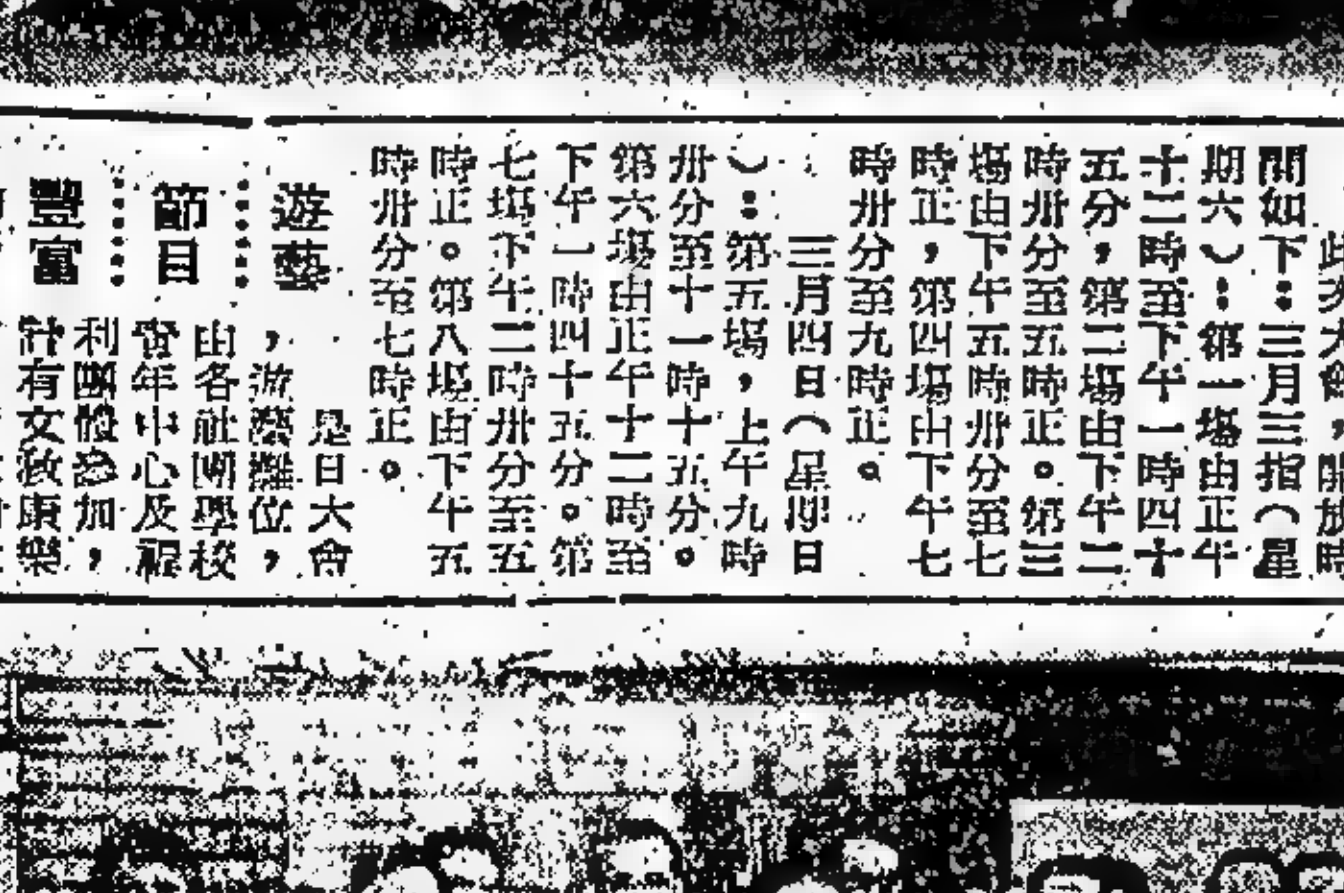 間如下：三月三指（星
期六）：第一場由正午
十二時至下午一時四十
五分，第二場由下午二
時卅分至五時正。第三
場由下午五時卅分至七
時正，第四場由下午七
時卅分至九時正。
三月四日（星期日
）：第五場，上午九時
卅分至十一時十五分。
第六場由正午十二時至
下午一時四十五分。第
七場下午二時卅分至五
時正。第八場由下午五
時卅分至七時正。
遊藝
節目
豐富
是日大會
，游藝攤位，
由各社團學校
青年中心及福
利團體參加，
計有文教康樂